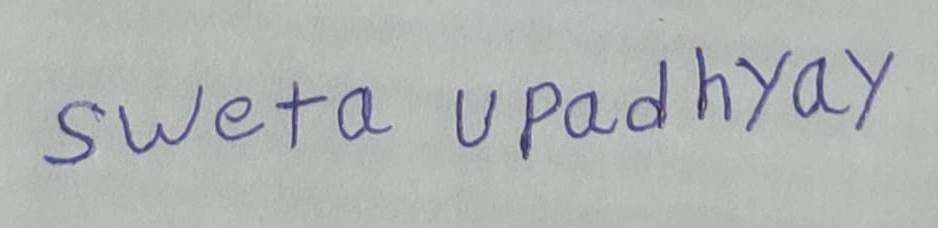 sweta upadhyay